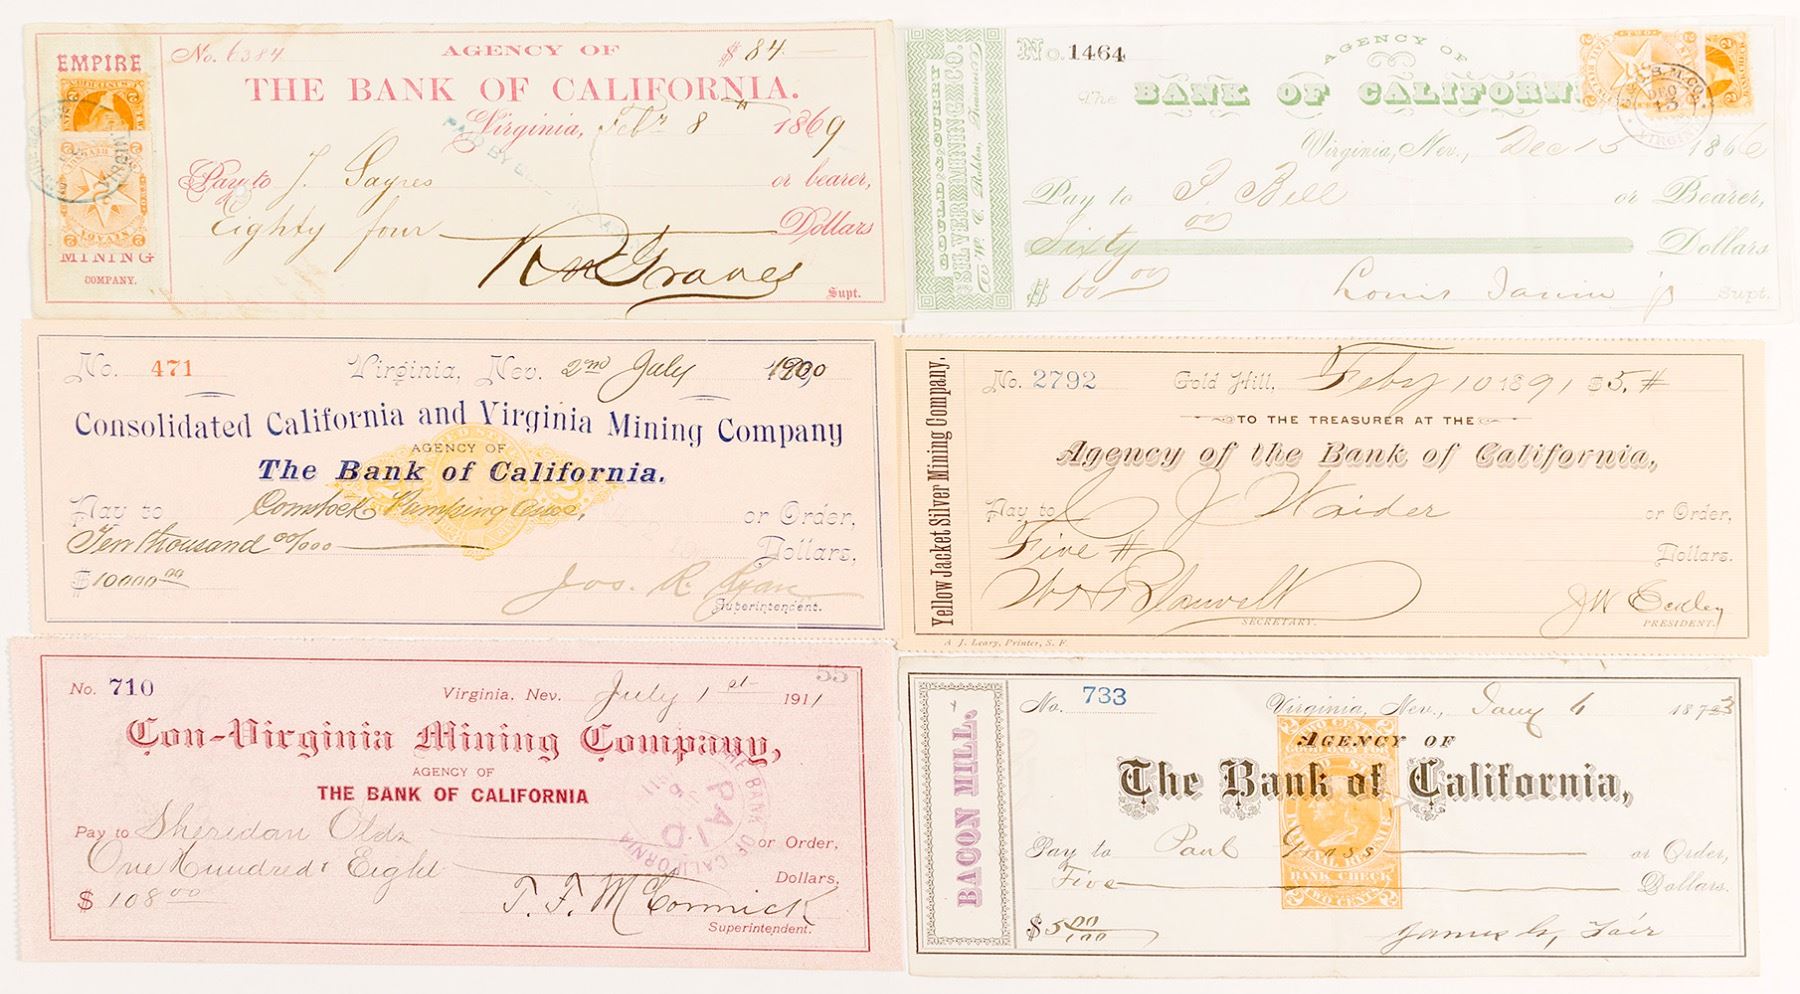 EMPIRE
MINING
COMPANY.
No. 6384
AGENCY OF
$ 84
THE BANK OF CALIFORNIA.
Virginia, Feby 8th 1869
Pay to J. Sayres or bearer,
Eighty four Dollars
Supt.
GOULD & CURRY
SILVER MINING CO.
No. 1464
AGENCY OF
The BANK OF CALIFORNI
Virginia, Nev., Dec 15 1866
Pay to J. Bell or Bearer,
Sixty Dollars
$ 60 00
Louis Janin Jr Supt.
No. 471 Virginia, Nev. 2nd July 1900
Consolidated California and Virginia Mining Company
AGENCY OF
The Bank of California.
Pay to Comstock Pumping Assn, or Order,
Ten thousand 00/000 Dollars.
$10000.00
Jos. R. Ryan
Superintendent.
Yellow Jacket Silver Mining Company.
No. 2792 Gold Hill, Feby 10 1891 $5.#
TO THE TREASURER AT THE
Agency of the Bank of California,
Pay to C J Waider or Order,
Five # Dollars.
SECRETARY.
PRESIDENT.
A. J. Leary, Printer, S. F.
No. 710 Virginia. Nev. July 1st 1911
55
Con-Virginia Mining Company,
AGENCY OF
THE BANK OF CALIFORNIA
Pay to Sheridan Olds or Order,
One Hundred & Eight Dollars,
$ 108 00
T. F. McCormick
Superintendent.
THE BANK OF CALIFORNIA
PAID
BACON MILL.
No. 733 Virginia, Nev., Jany 6 1873
AGENCY OF
The Bank of California,
Pay to Paul Grass or Order,
Five Dollars.
$5 00/100
James G, Fair
BANK CHECK
TWO CENTS